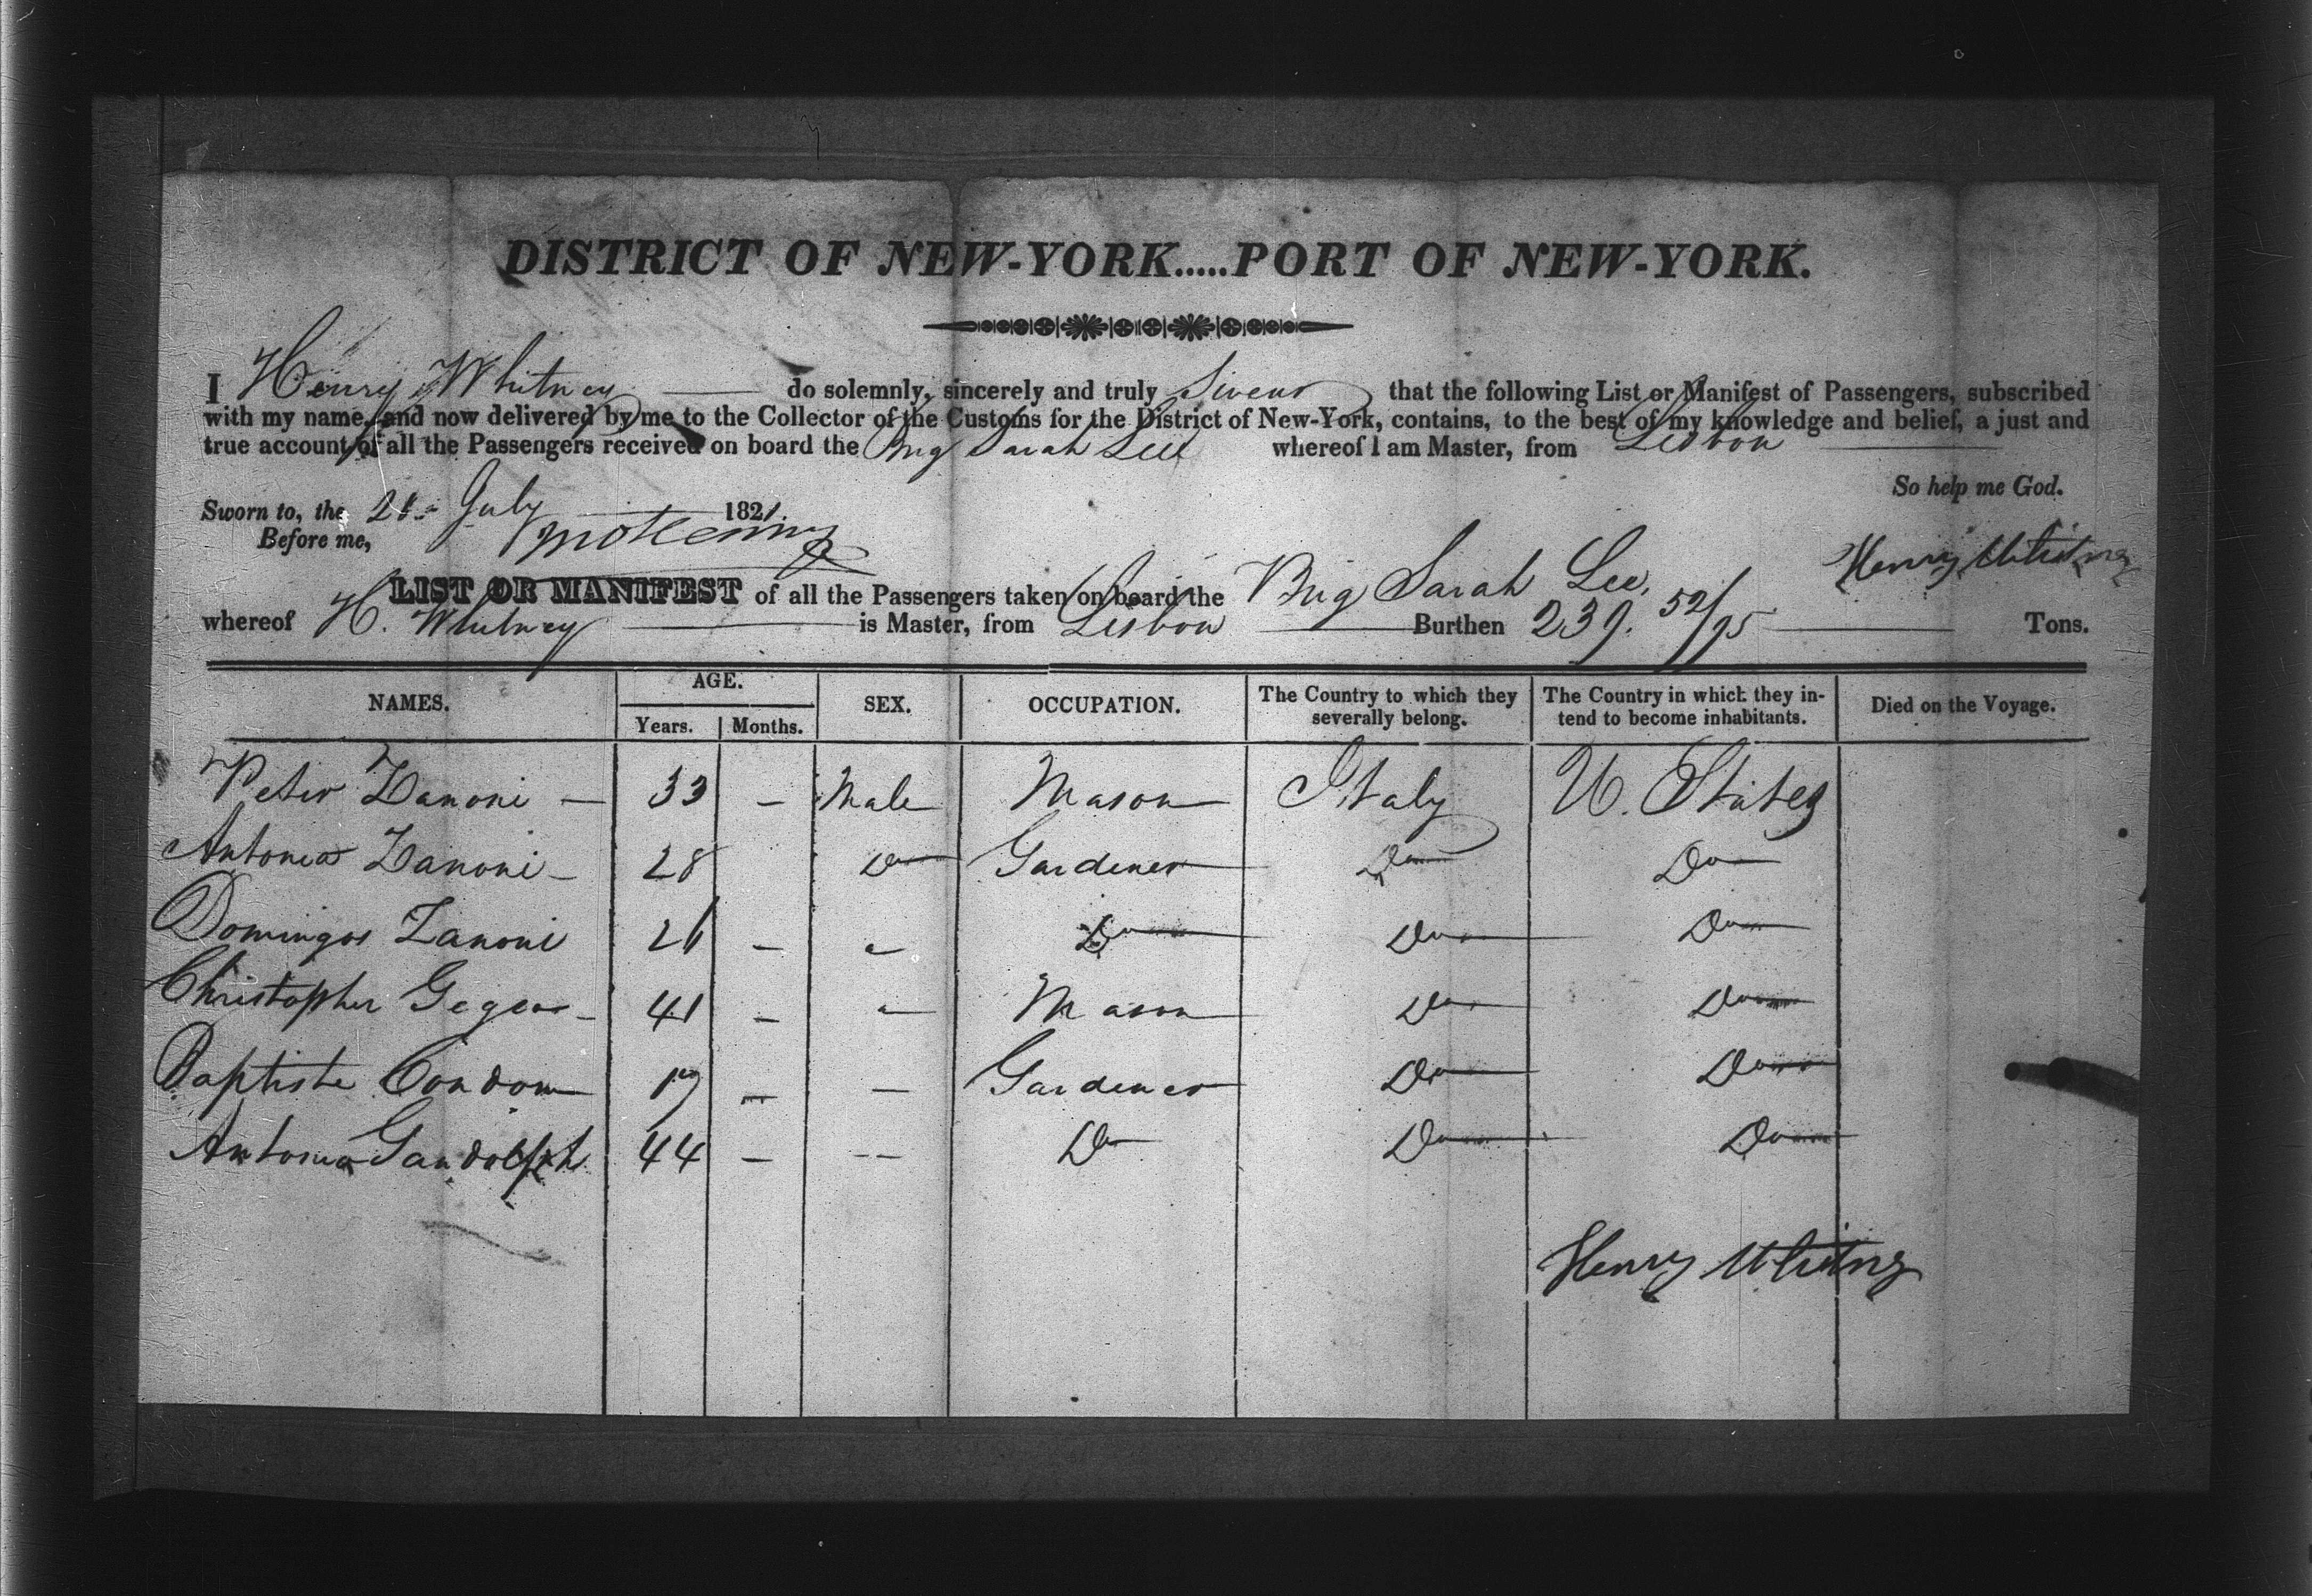 DISTRICT OF NEW-YORK.....PORT OF NEW-YORK.
I Henry Whitney do solemnly, sincerely and truly Swear that the following List or Manifest of Passengers, subscribed
with my name, and now delivered by me to the Collector of the Customs for the District of New-York, contains, to the best of my knowledge and belief, a just and
true account of all the Passengers received on board the Brig Sarah Lee whereof I am Master, from Lisbon
So help me God.
Sworn to, the July 1821.
Before me,
Henry Whitney
LIST OR MANIFEST of all the Passengers taken on board the Brig Sarah Lee,
whereof H. Whitney is Master, from Lisbon Burthen 239. 52/95 Tons.
NAMES. AGE. SEX. OCCUPATION. The Country to which they severally belong. The Country in which they intend to become inhabitants. Died on the Voyage.
Years. Months.
Peter Zanoni — 33 — Male Mason Italy U. States
Antonio Zanoni — 28 Do Gardener Do Do
Domingos Zanoni 26 — " Do Do Do
Christopher — 41 — " Mason Do Do
Baptiste Condom 19 — — Gardener Do Do
Antonio Gandolph 44 — -- Do Do Do
Henry Whitney